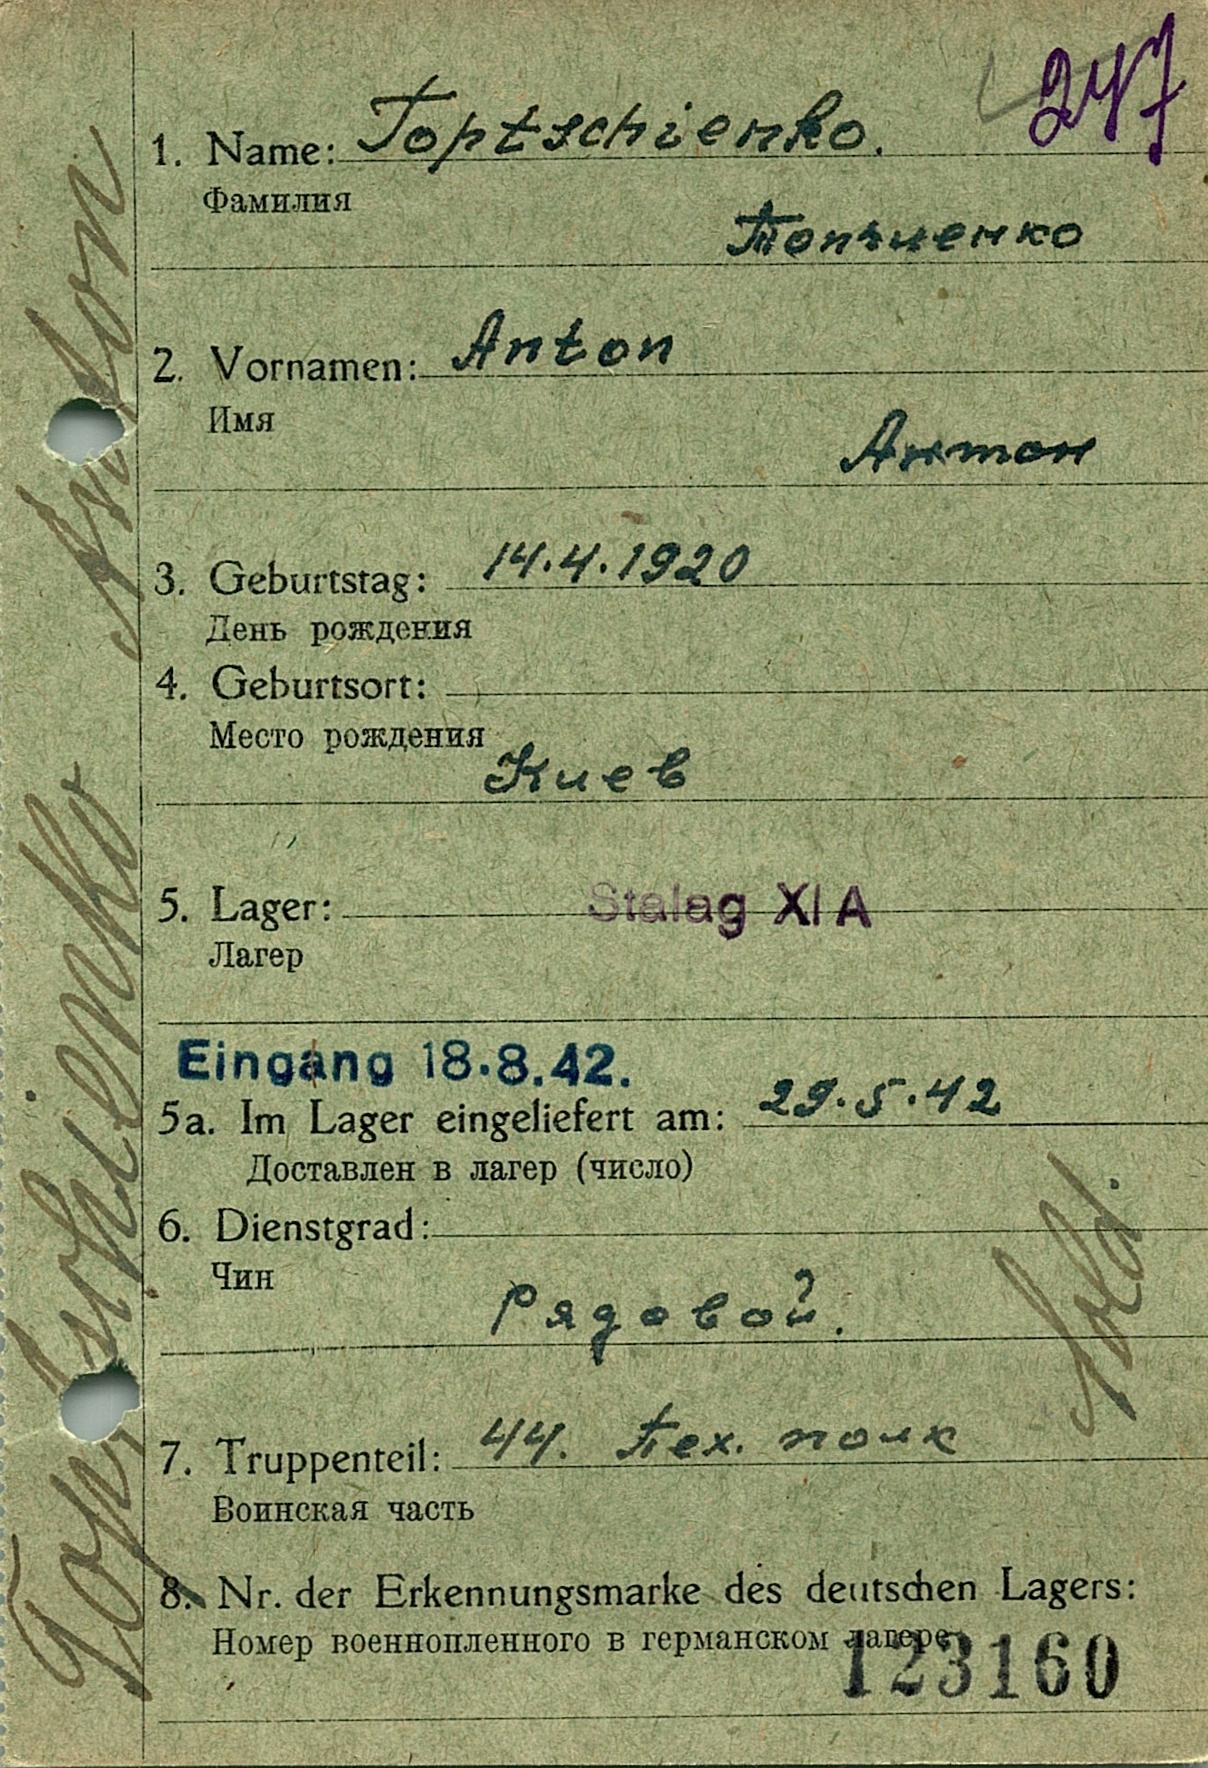 247
1. Name: Toptschienko.
Фамилия
Топчиенко
2. Vornamen: Anton
Имя
Антон
3. Geburtstag: 14.4.1920
День рождения
4. Geburtsort:
Место рождения
Киев
5. Lager: Stalag XI A
Лагер
Eingang 18.8.42.
5a. Im Lager eingeliefert am: 29.5.42
Доставлен в лагер (число)
6. Dienstgrad:
Чин
Рядовой.
Sold.
7. Truppenteil: 44. Пех. полк
Воинская часть
8. Nr. der Erkennungsmarke des deutschen Lagers:
Номер военнопленного в германском лагере
123160
Toptschienko Anton